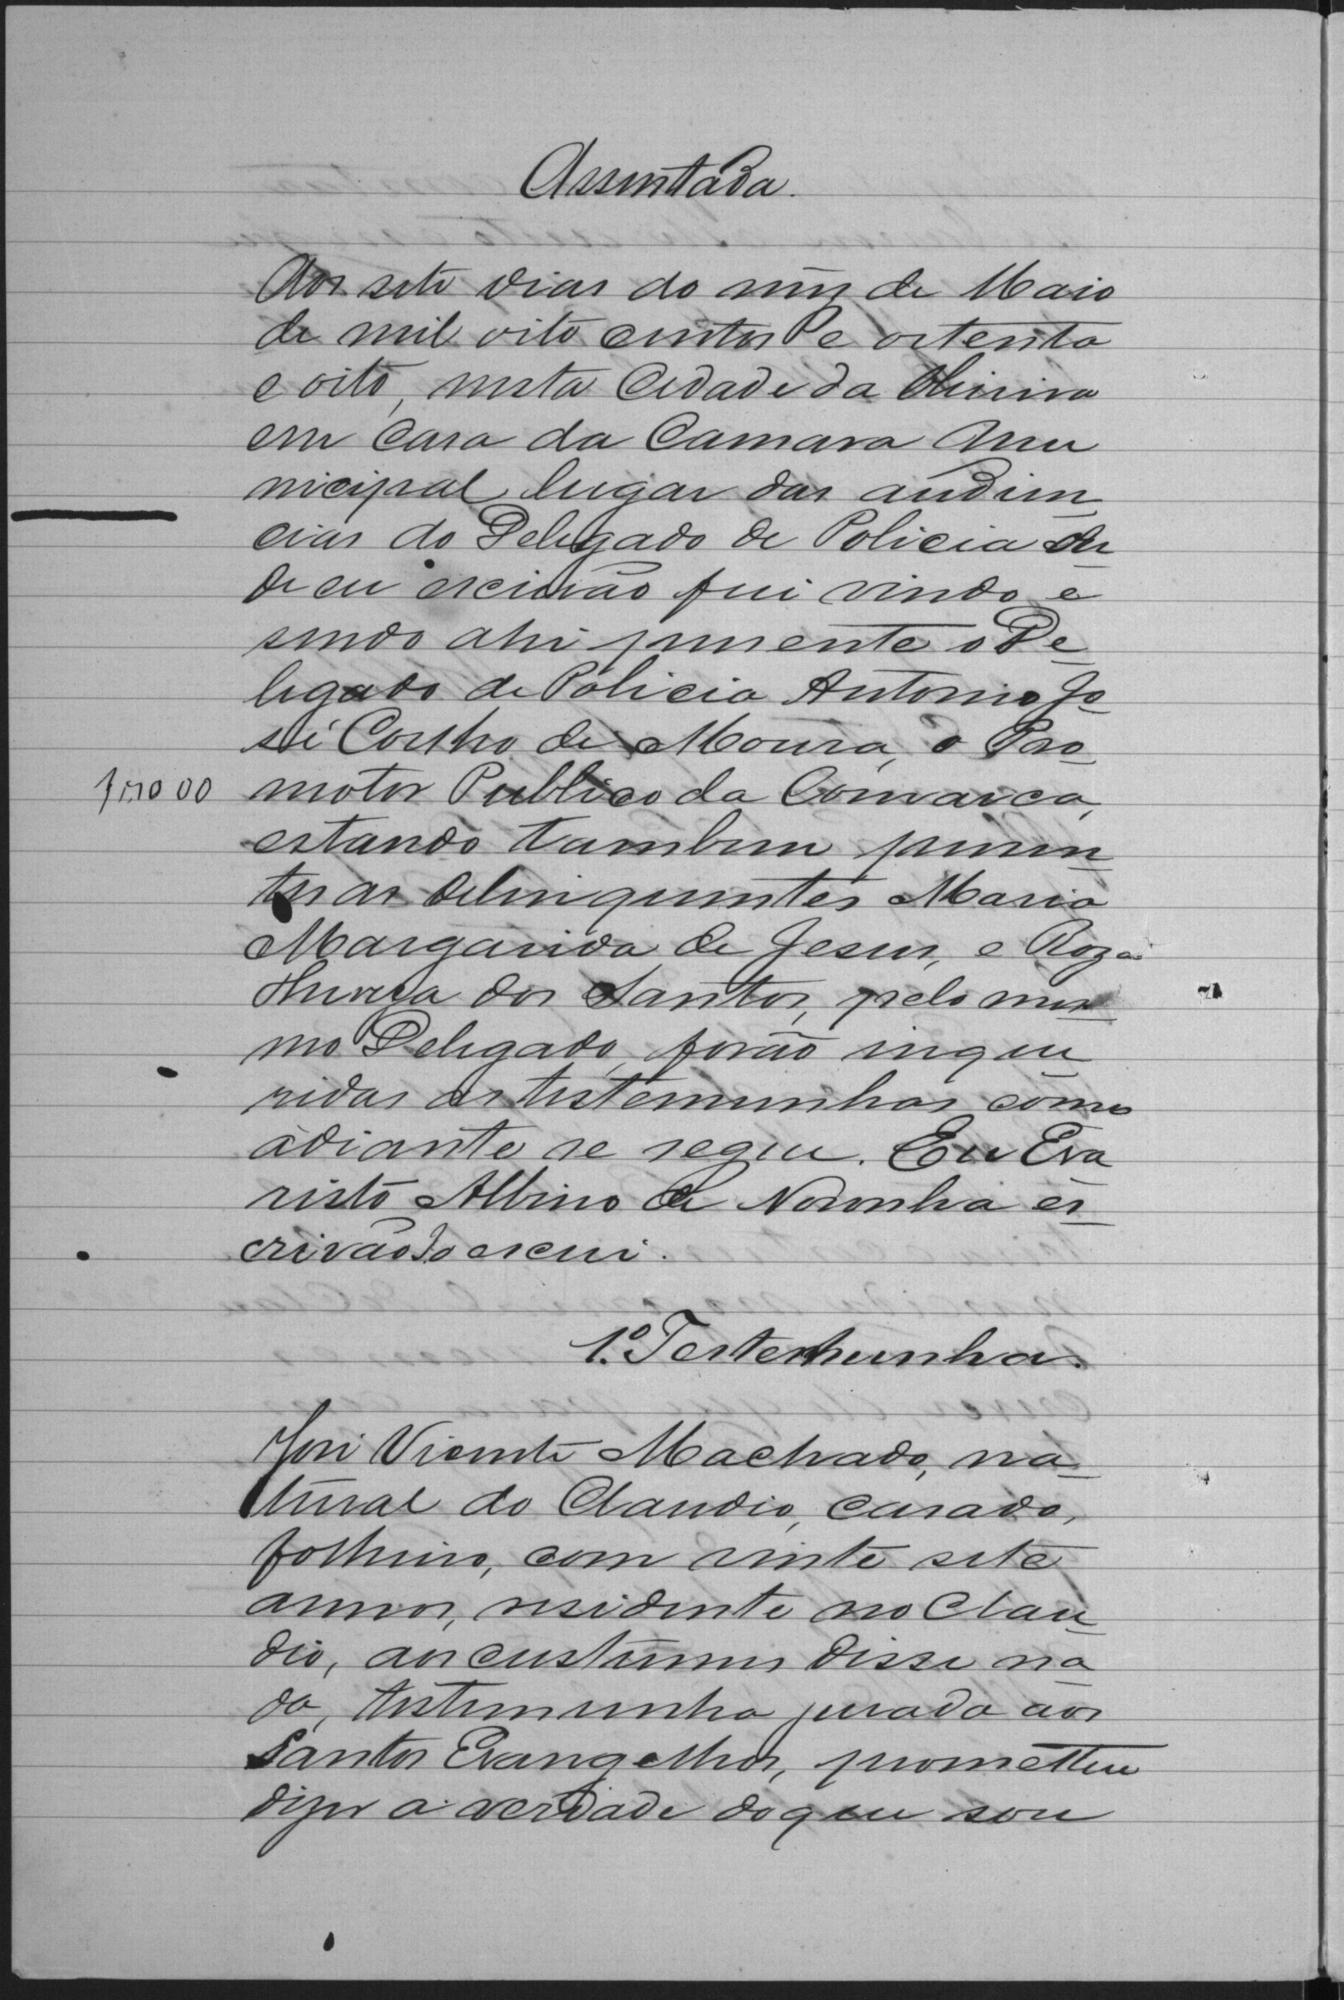 Assentada.
Aos sete dias do mez de Maio
de mil oito centos e oitenta
e oito, nesta Cidade da Oliveira
em Casa da Camara Mu
nicipal lugar das audien
cias do Delegado de Policia on
de eu escrivão fui vindo e
sendo ahi presente o De
legado de Policia Antonio Jo
sé Coelho de Moura, o Pro
motor Publico da Comarca,
estando tambem presen
tes as delinquentes Maria
Margarida de Jesus, e Roza
dos Santos, pelo mes
mo Delegado, forão inque
ridas as testemunhas como
adiante se segue. Eu Eva
risto Albino de Noronha es
crivão o escrevi.
1.º Testemunha.
José Vicente Machado, na
tural do Claudio, casado,
folheiro, com vinte sete
annos, residente no Clau
dio, aos custumes disse na
da, testemunha jurada aos
Santos Evangelhos, prometteu
dizer a verdade do que sou